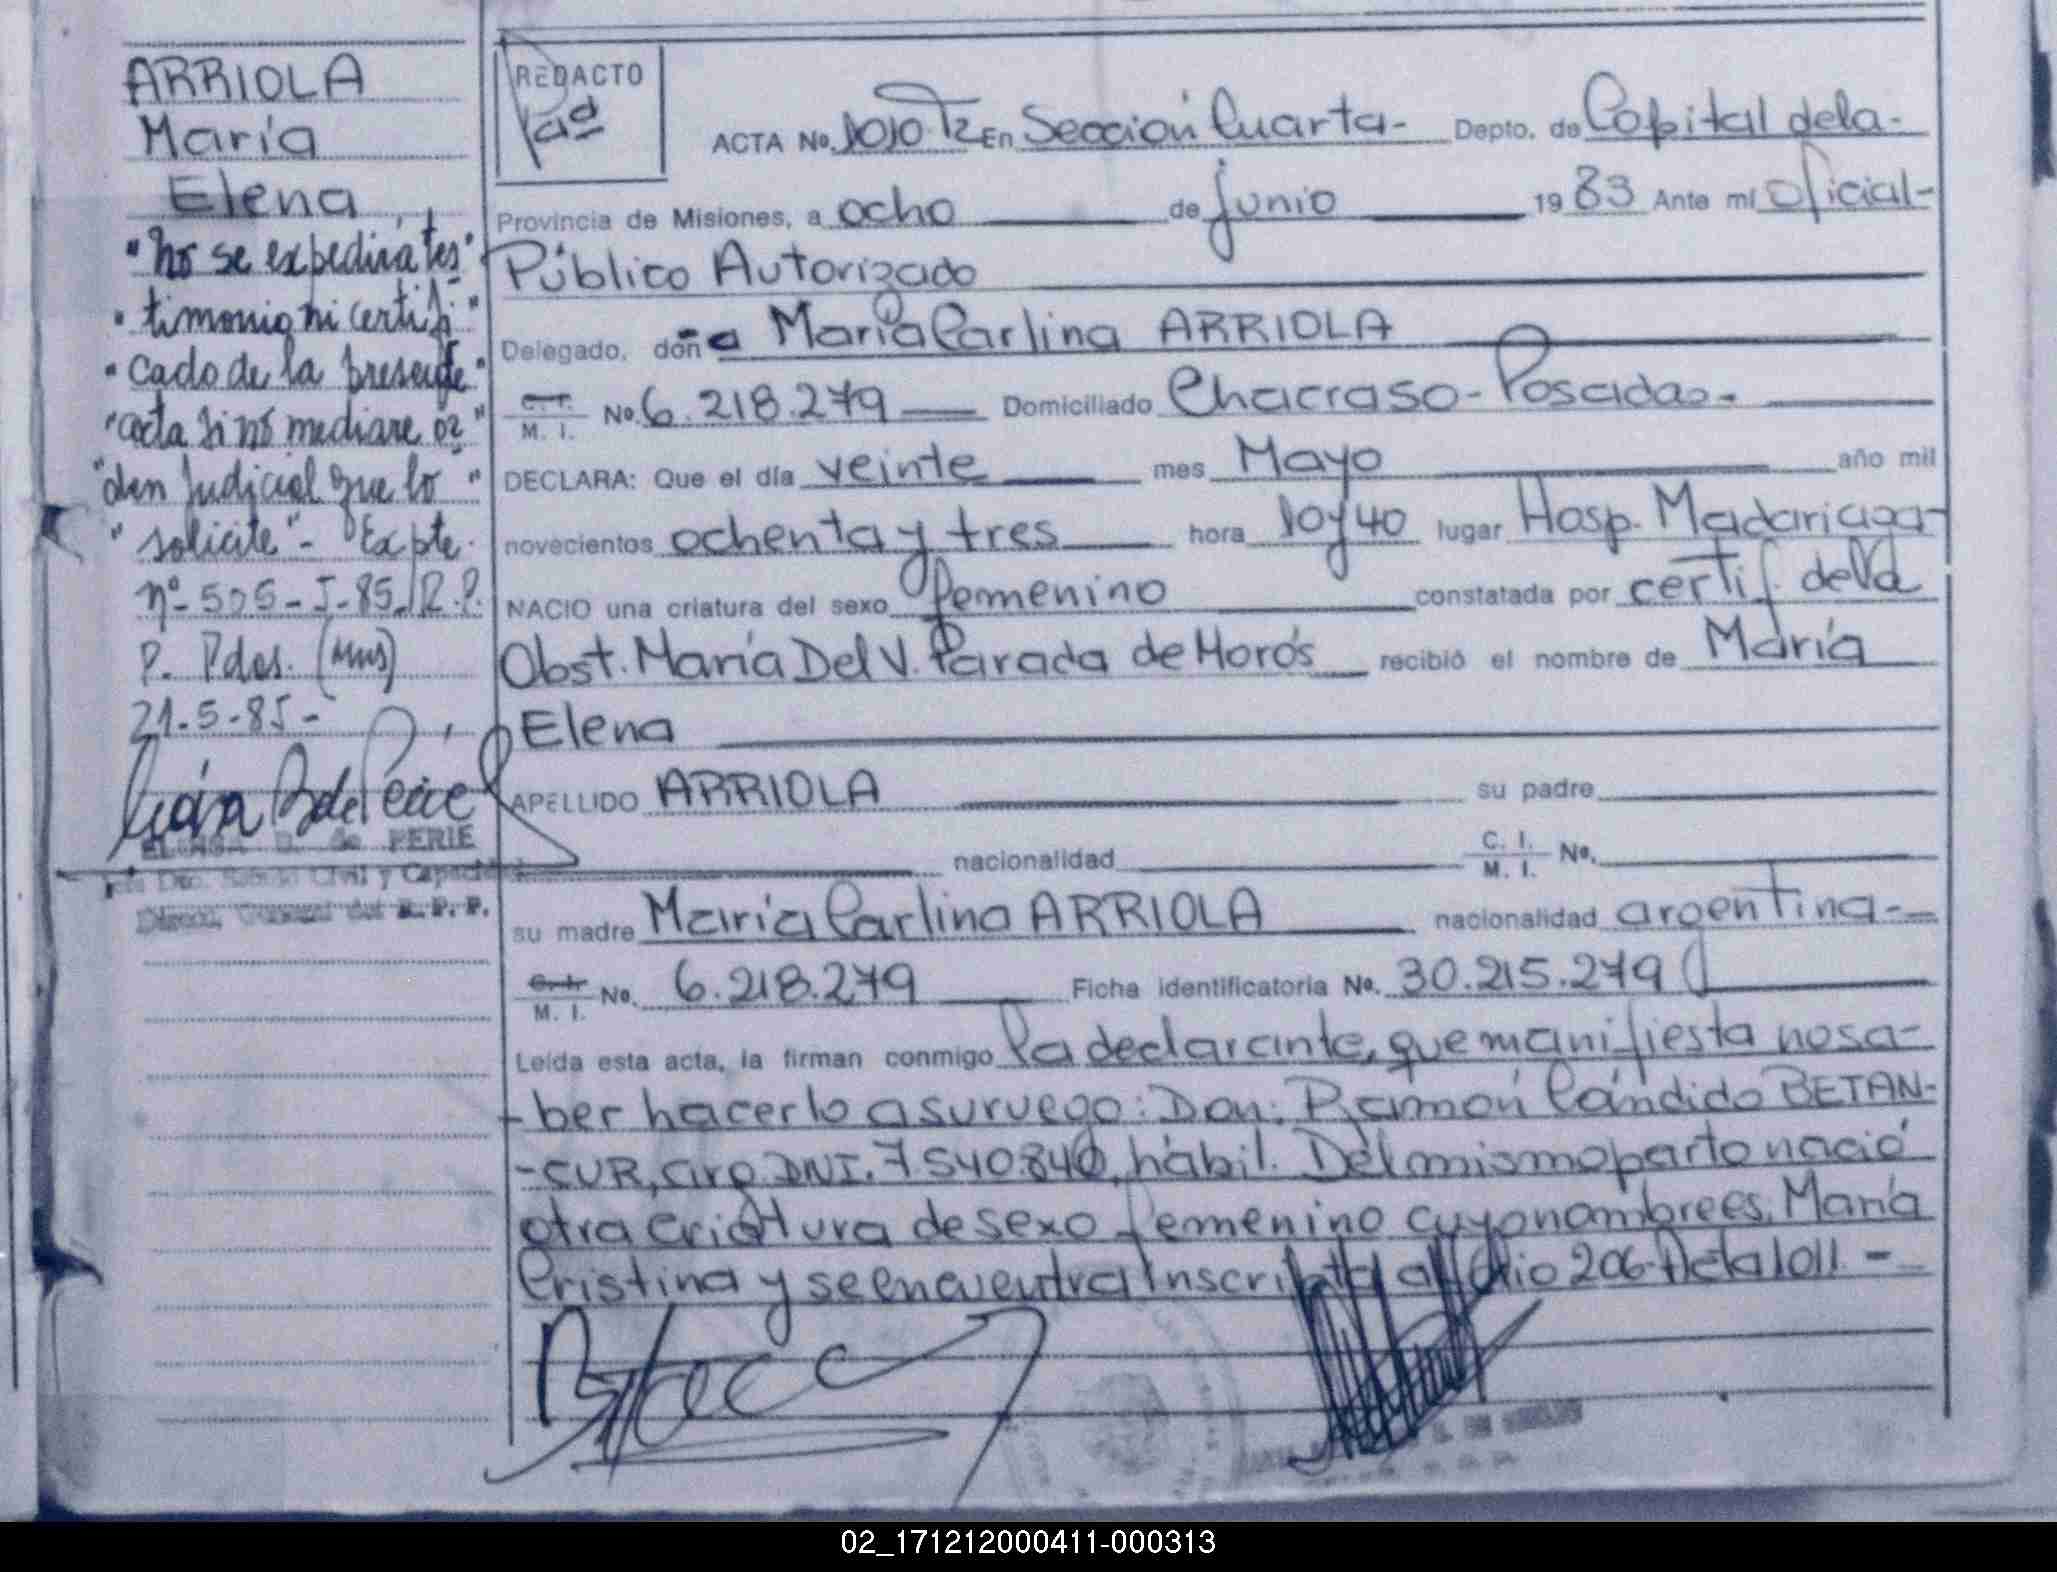 ARRIOLA
María
Elena
"No se expedirá tes"
"timonio ni certifi"
"cado de la presente"
"acta si no mediare or"
"den Judicial que lo"
"solicite"- Expte.
nº-505-J-85-R.P.
P. Pdas. (Mnes)
21-5-85-
de PERIE
Civil y
General del R.P.P.
REDACTO
ACTA No. 1010-T2 En Sección Cuarta- Depto. de Capital de la-
Provincia de Misiones, a ocho de junio 1983 Ante mí oficial-
Público Autorizado
Delegado, doña María Carlina ARRIOLA
C. I. M. I. No. 6.218.279 Domiciliado Chacra 50-Posadas-
DECLARA: Que el día veinte mes Mayo año mil
novecientos ochenta y tres hora 10y40 lugar Hosp. Madariaga-
NACIO una criatura del sexo femenino constatada por certif. de la
Obst. María Del V. Parada de Horós recibió el nombre de María
Elena
APELLIDO ARRIOLA su padre
nacionalidad C. I. M. I. No.
su madre María Carlina ARRIOLA nacionalidad argentina-
C. I. M. I. No. 6.218.279 Ficha identificatoria No. 30.215.279
Leída esta acta, la firman conmigo la declarante, que manifiesta no sa-
-ber hacerlo a su ruego: Don: Ramón Cándido BETAN-
-CUR, arg. DNI. 7.540.840, hábil. Del mismo parto nació
otra criatura de sexo femenino cuyo nombre es, María
Cristina y se encuentra inscripta al folio 206-Acta 1011.-
02_171212000411-000313